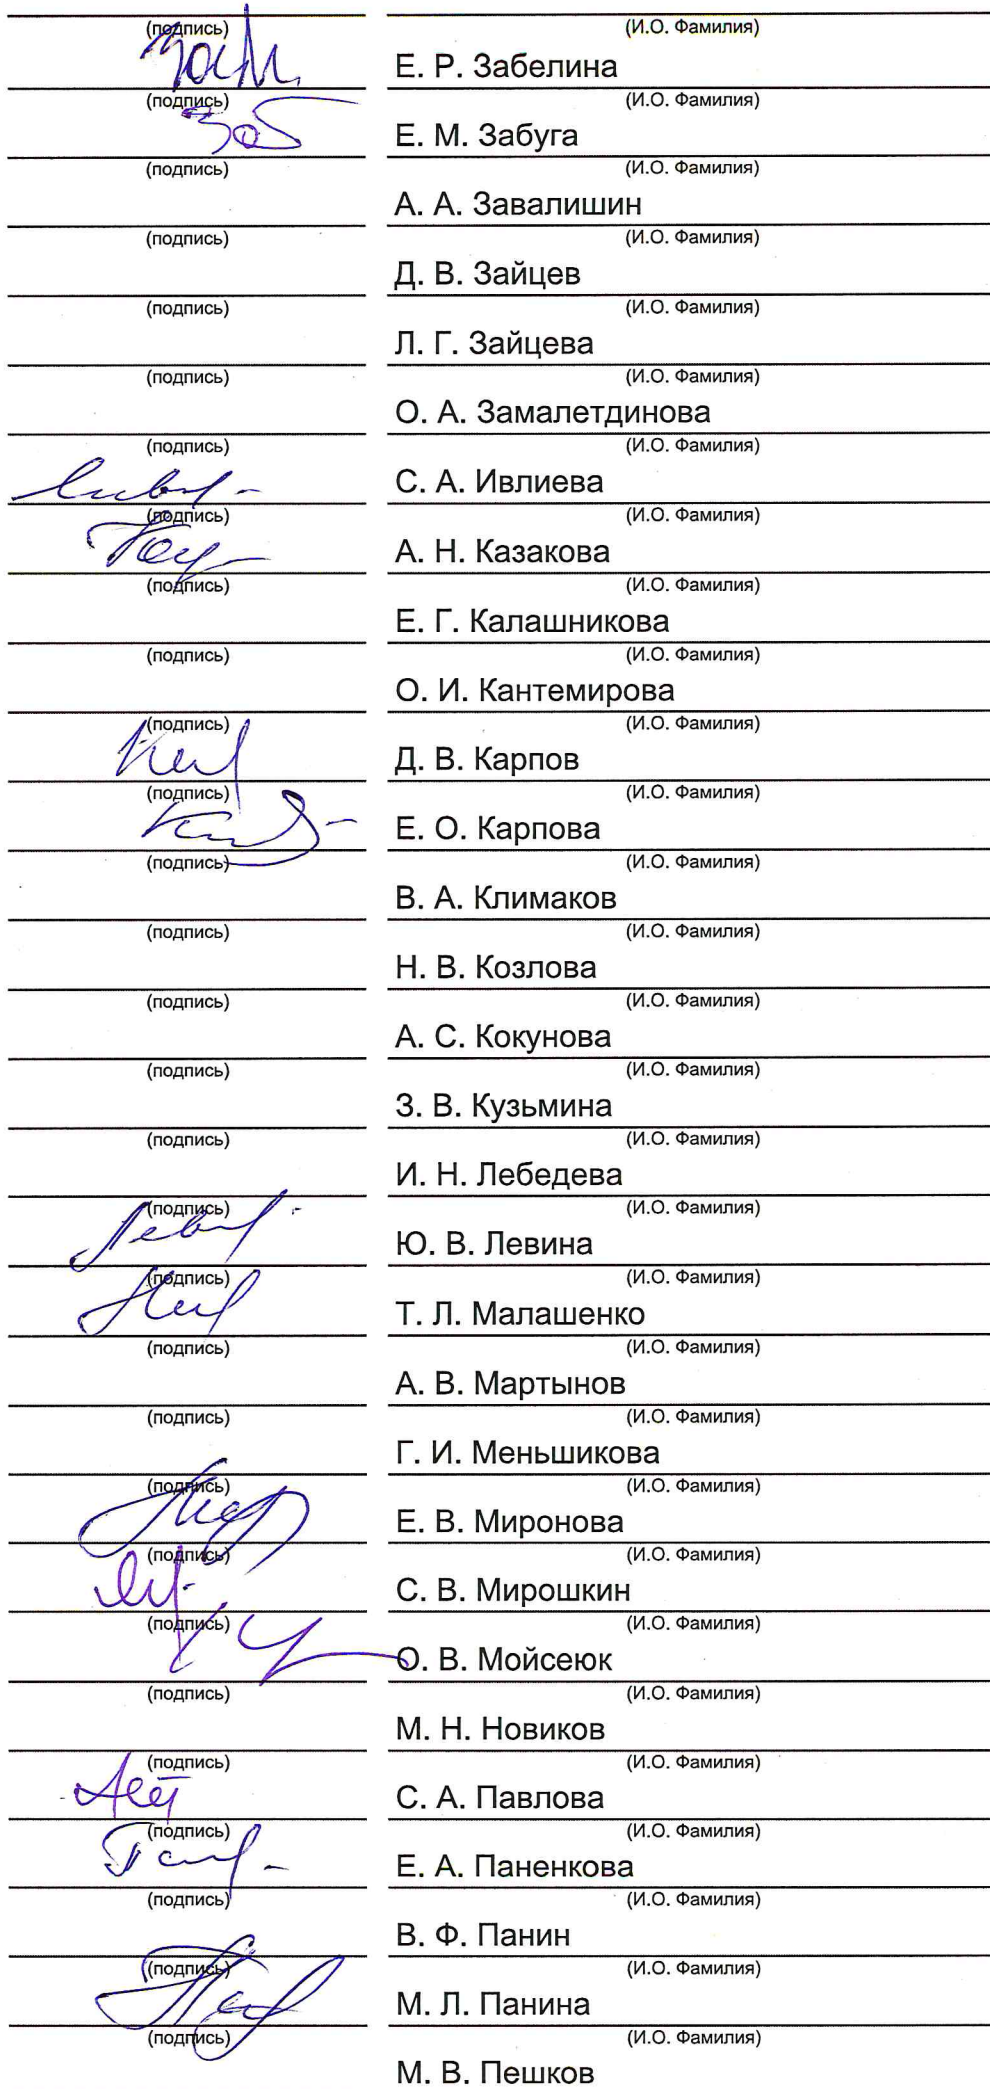 (подпись) (И.О. Фамилия)
Е. Р. Забелина
(подпись) (И.О. Фамилия)
Заб Е. М. Забуга
(подпись) (И.О. Фамилия)
А. А. Завалишин
(подпись) (И.О. Фамилия)
Д. В. Зайцев
(подпись) (И.О. Фамилия)
Л. Г. Зайцева
(подпись) (И.О. Фамилия)
О. А. Замалетдинова
(подпись) (И.О. Фамилия)
С. А. Ивлиева
(подпись) (И.О. Фамилия)
А. Н. Казакова
(подпись) (И.О. Фамилия)
Е. Г. Калашникова
(подпись) (И.О. Фамилия)
О. И. Кантемирова
(подпись) (И.О. Фамилия)
Д. В. Карпов
(подпись) (И.О. Фамилия)
Е. О. Карпова
(подпись) (И.О. Фамилия)
В. А. Климаков
(подпись) (И.О. Фамилия)
Н. В. Козлова
(подпись) (И.О. Фамилия)
А. С. Кокунова
(подпись) (И.О. Фамилия)
З. В. Кузьмина
(подпись) (И.О. Фамилия)
И. Н. Лебедева
(подпись) (И.О. Фамилия)
Ю. В. Левина
(подпись) (И.О. Фамилия)
Т. Л. Малашенко
(подпись) (И.О. Фамилия)
А. В. Мартынов
(подпись) (И.О. Фамилия)
Г. И. Меньшикова
(подпись) (И.О. Фамилия)
Е. В. Миронова
(подпись) (И.О. Фамилия)
С. В. Мирошкин
(подпись) (И.О. Фамилия)
О. В. Мойсеюк
(подпись) (И.О. Фамилия)
М. Н. Новиков
(подпись) (И.О. Фамилия)
С. А. Павлова
(подпись) (И.О. Фамилия)
Е. А. Паненкова
(подпись) (И.О. Фамилия)
В. Ф. Панин
(подпись) (И.О. Фамилия)
М. Л. Панина
(подпись) (И.О. Фамилия)
М. В. Пешков